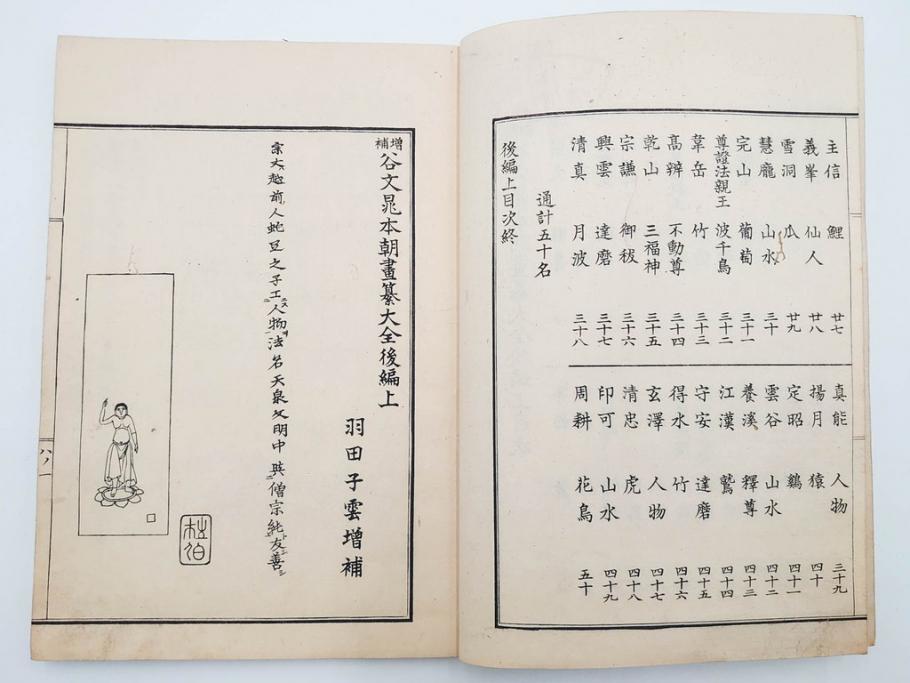 主信 鯉 廿七
義峯 仙人 廿八
雪洞 瓜 廿九
慧龐 山水 三十
完山 葡萄 三十一
尊證法親王 波千鳥 三十二
韋岳 竹 三十三
高辨 不動尊 三十四
乾山 三福神 三十五
宗謙 御祓 三十六
興雲 達磨 三十七
清真 月波 三十八
真能 人物 三十九
揚月 猿 四十
定昭 鷄 四十一
雲谷 山水 四十二
養溪 釋尊 四十三
江漢 鷲 四十四
守安 達磨 四十五
得水 竹 四十六
玄澤 人物 四十七
清忠 虎 四十八
印可 山水 四十九
周耕 花鳥 五十
通計五十名
後編上目次終
增補谷文晁本朝畫纂大全後編上
羽田子雲增補
宗丈越前人蛇足之子工人物法名天泉文明中與僧宗純友善